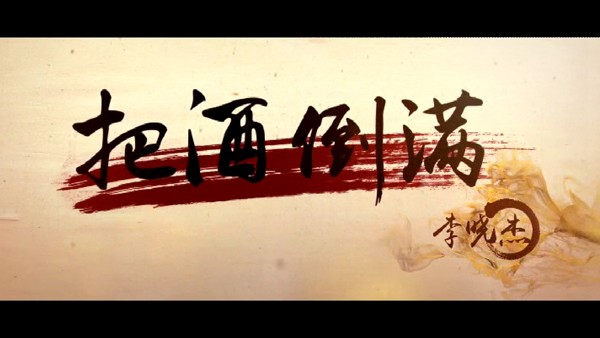 把酒倒满
李晓杰